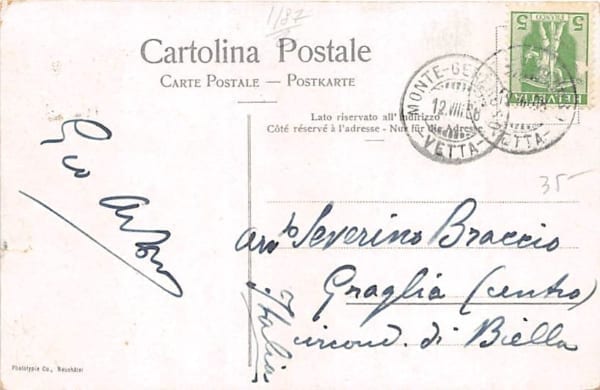 1/87
Cartolina Postale
CARTE POSTALE — POSTKARTE
Lato riservato all' indirizzo
Côté réservé à l'adresse - Nur für die Adresse
5
FRANCO
HELVETIA
MONTE-GENEROSO
12.VIII.08
-VETTA-
VETTA-
35-
Severino Braccio
Graglia (centro)
circond. di Biella
Italia
Phototypie Co., Neuchâtel